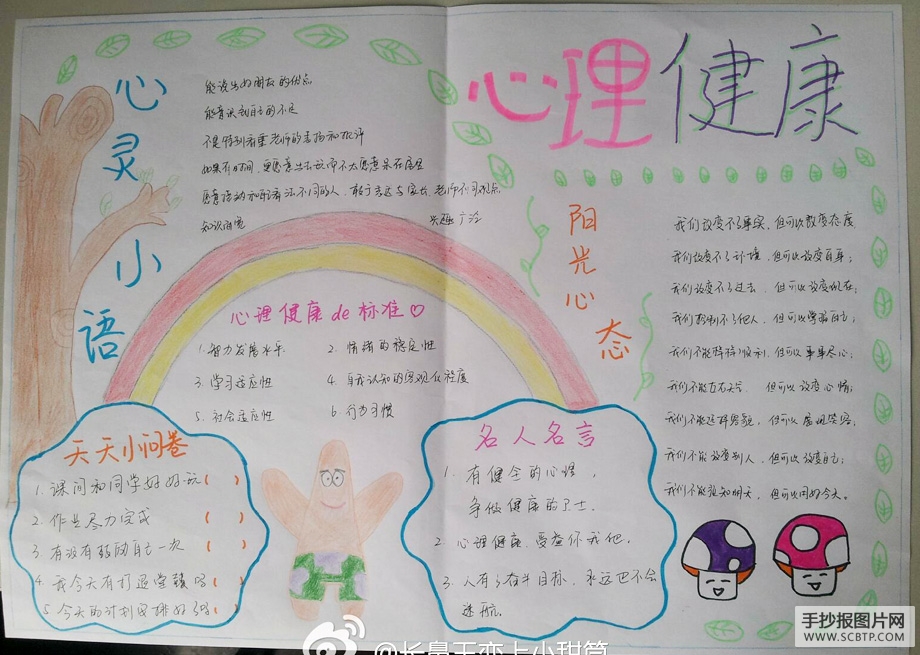 心理健康
心灵小语
能说出好朋友的优点
能意识到自己的不足
不是特别看重老师的表扬和批评
如果有时间,更愿意出去玩而不太愿意呆在屋里
愿意接动和联看法不同的人,敢于表达与家长,老师不同观点
知识面宽
兴趣广泛
心理健康de标准♡
1.智力发展水平
2.情绪的稳定性
3.学习适应性
4.自我认知的客观化程度
5.社会适应性
6.行为习惯
天天小问卷
1.课间和同学好好玩( )
2.作业尽力完成( )
3.有没有鼓励自己一次( )
4.我今天有打退堂鼓吗( )
5.今天的计划安排好了吗( )
名人名言
1.有健全的心理,
争做健康的卫士.
2.心理健康,受益你我他.
3.人有了奋斗目标,永远也不会
迷航.
阳光心态
我们改变不了事实,但可以改变态度
我们改变不了环境,但可以改变自身;
我们改变不了过去,但可以改变现在;
我们控制不了他人,但可以掌握自己;
我们不能样样顺利,但可以事事尽心;
我们不能左右天气,但可以改变心情;
我们不能选择容貌,但可以展现笑容;
我们不能改变别人,但可以改变自己;
我们不能预知明天,但可以用好今天。
手抄报图片网
WWW.SCBTP.COM
@长鼻王恋上小甜筒